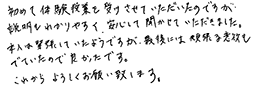 初めて体験授業を受けさせていただいたのですが、
説明もわかりやすく、安心して聞かせていただきました。
本人は緊張していたようですが、最後には頑張る意欲も
でていたので良かったです。
これからよろしくお願い致します。